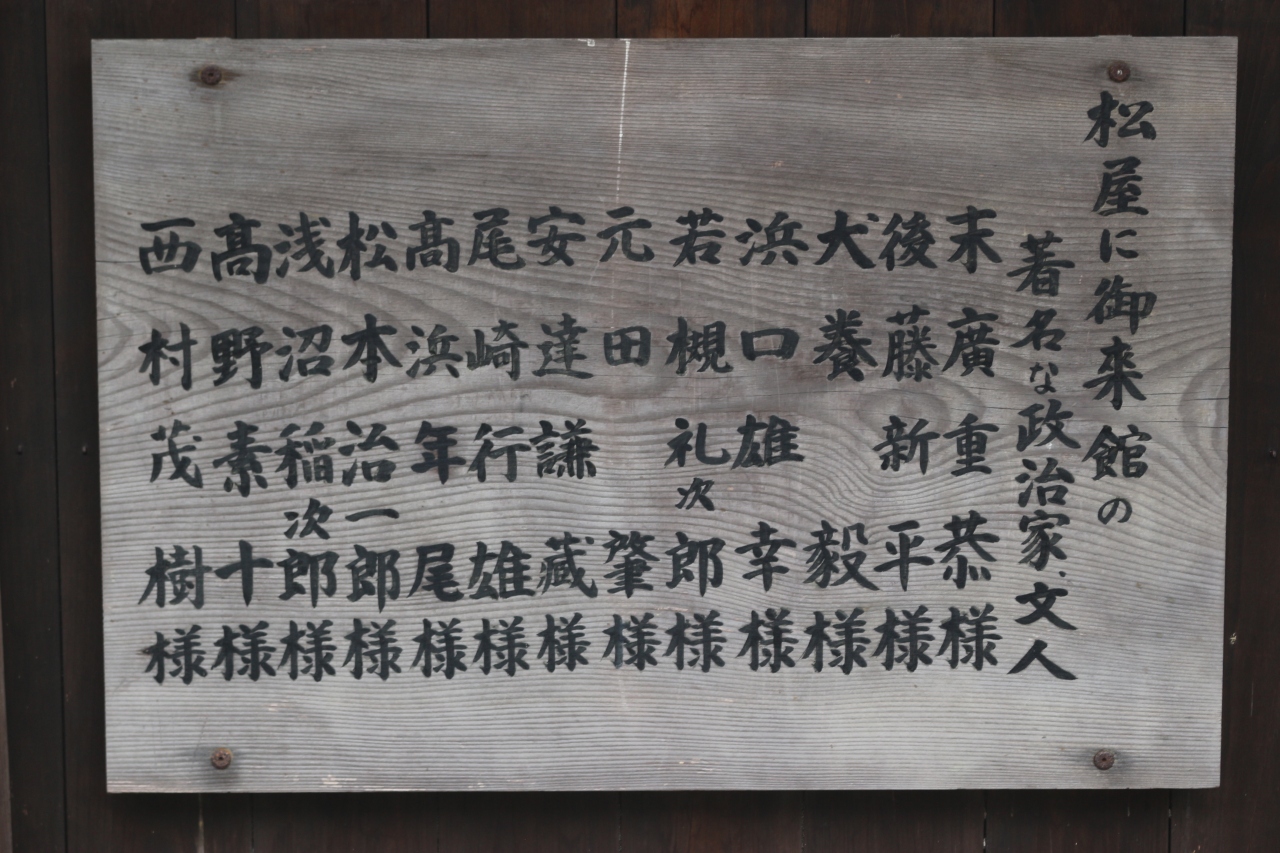 松屋に御来館の
著名な政治家、文人
末廣重恭様
後藤新平様
犬養毅様
浜口雄幸様
若槻礼次郎様
元田肇様
安達謙蔵様
尾崎行雄様
髙浜年尾様
松本治一郎様
浅沼稲次郎様
髙野素十様
西村茂樹様